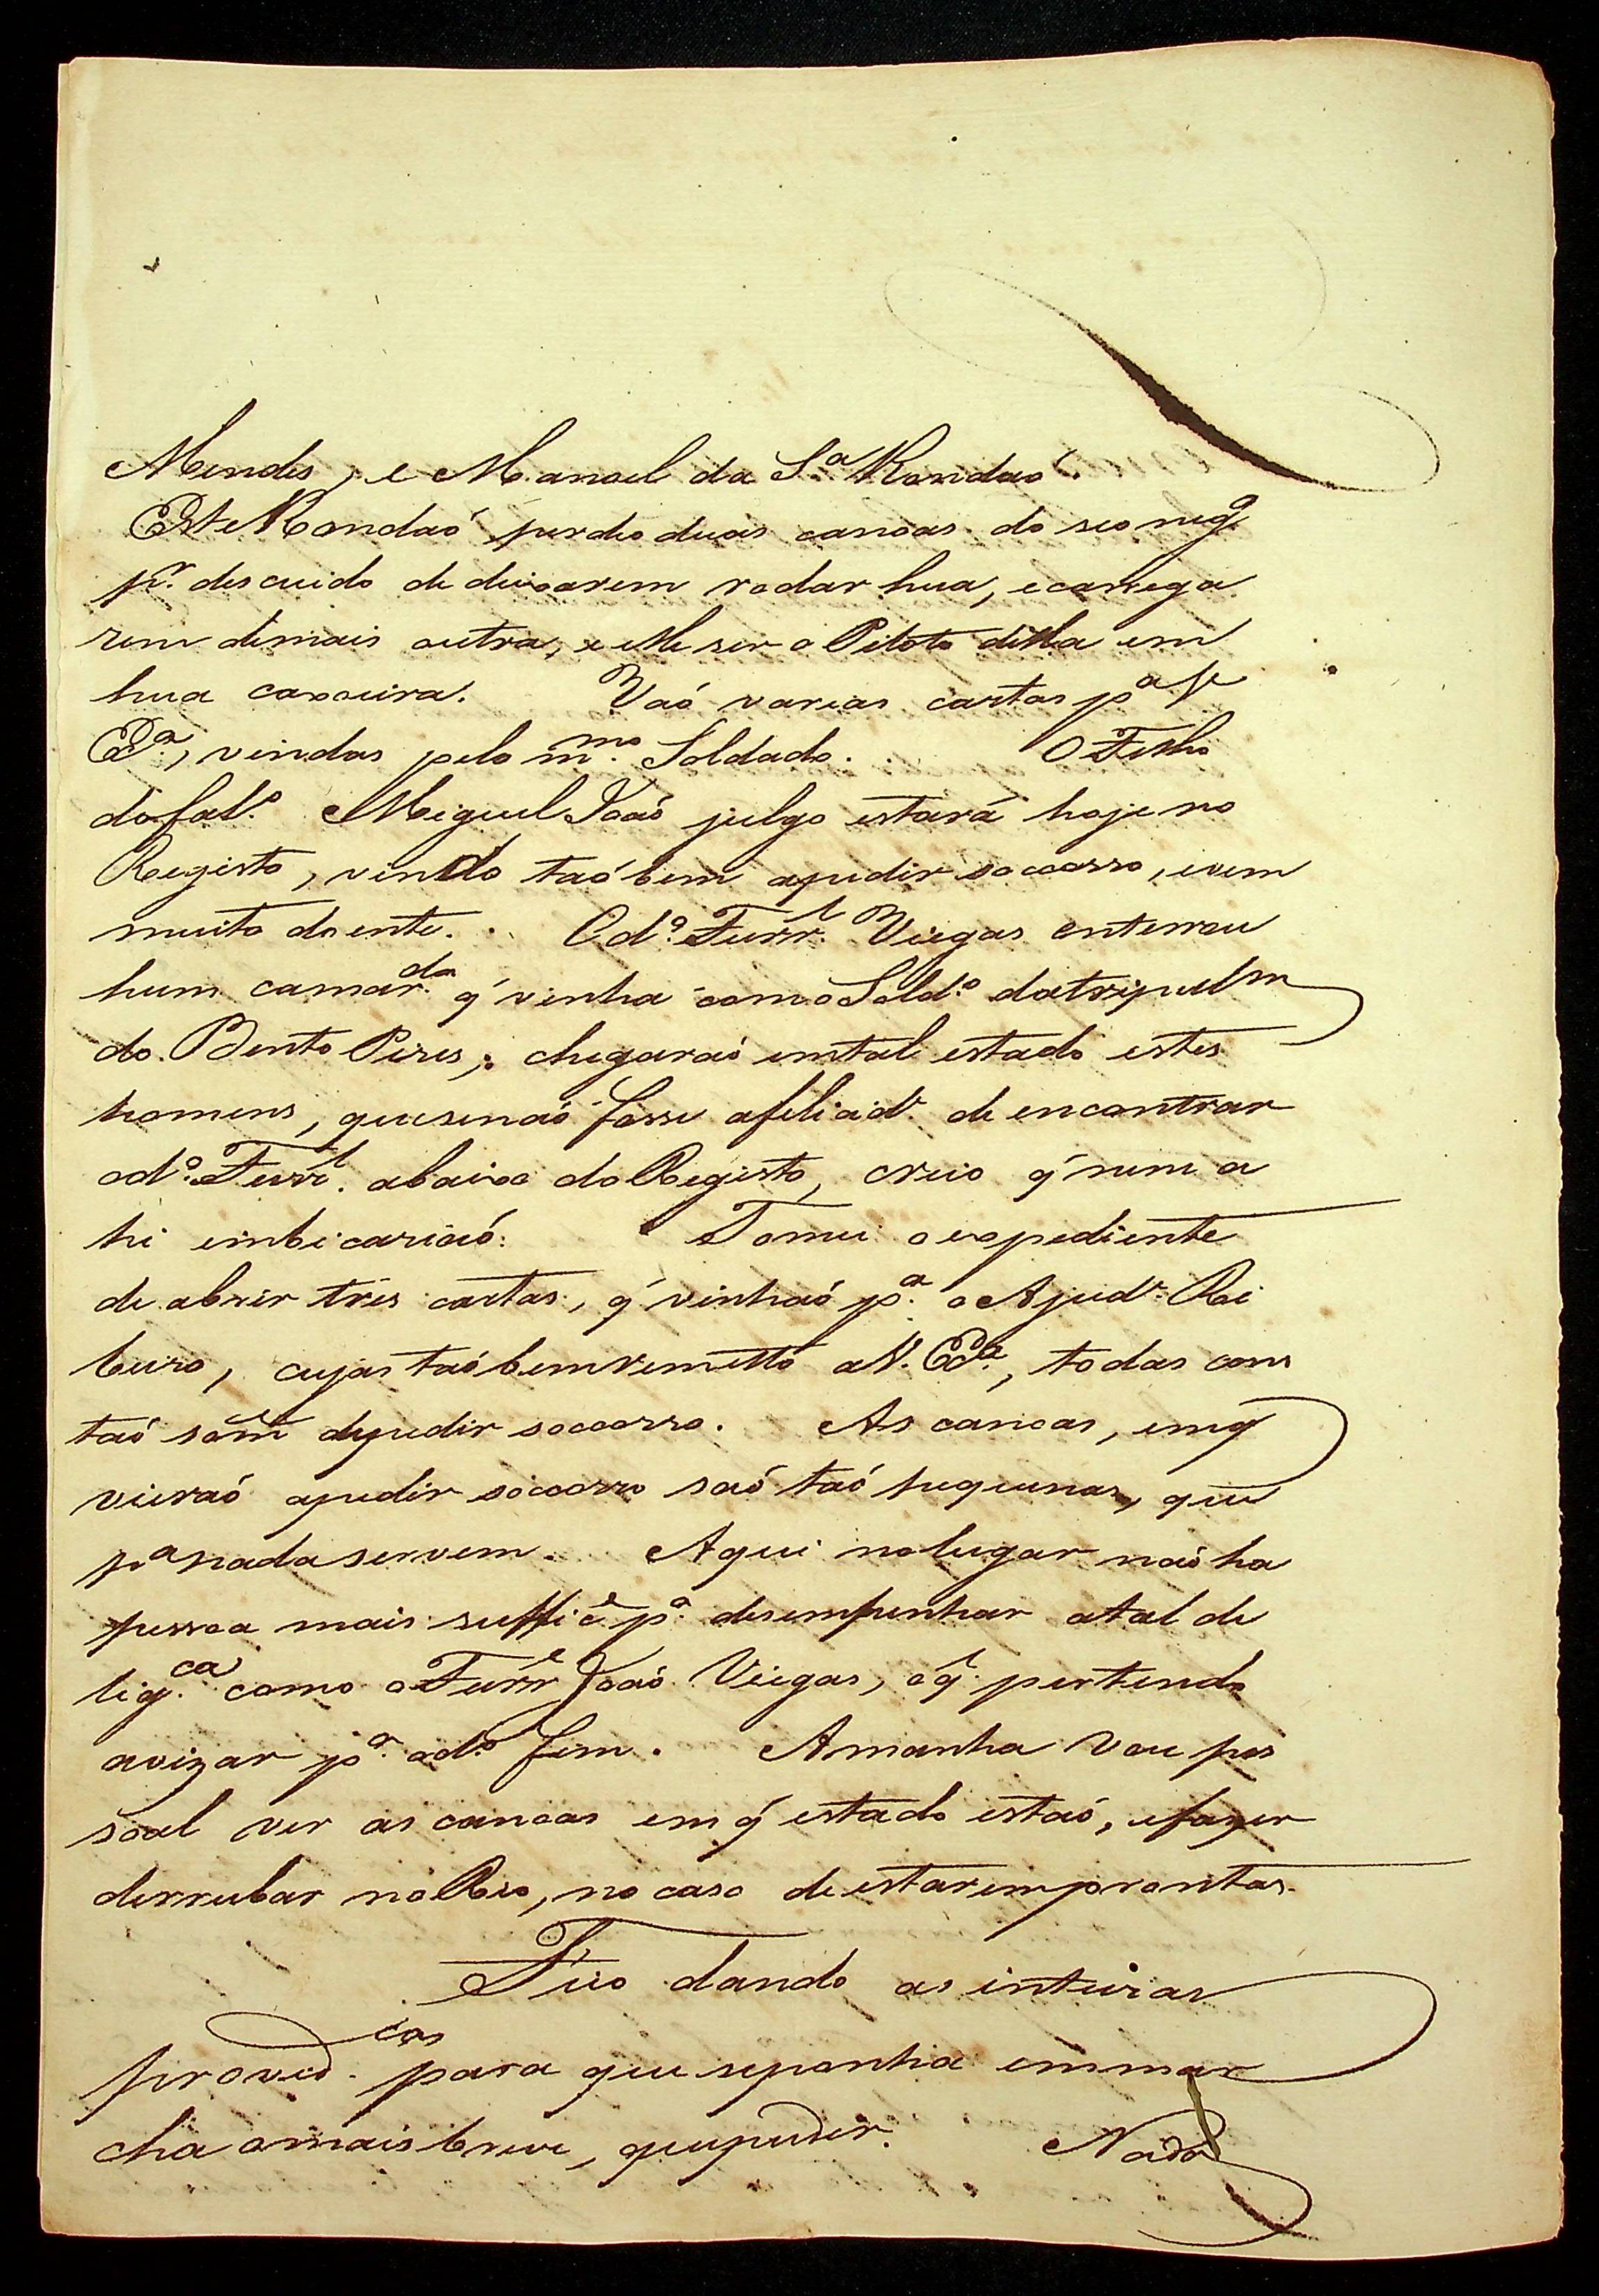 Mendes, e Manoel da S.ª Rondaó.
Este Rondaó perdeo duas canoas do seo neg.º
p.r descuido de deixarem rodar hua, e carrega
rem demais outra, e elle ser o Piloto della em
hua caxoeira. Vaó varias cartas p.ª V.
Ex.ª, vindas pelo m.mo Soldado. O Filho
do fal.º Miguel Joaó julgo estará hoje no
Registo, vindo taóbem apedir socorro, evem
muito doente. Od.º Furr.l Viegas enterrou
hum camar.da q' vinha com o Sold.º datripul.m
do Bento Pires; chegaraó emtal estado estes
homens, quesenaó fosse afelicid.e de encontrar
od.º Furr.l abaixo do Registo, creio q' nem a
hi embicariaó. Tomei o expediente
de abrir tres cartas, q' vinhaó p.ª o Ajud.e Ri
beiro, cujas taóbemremetto aV. Ex.ª, todas cons
taó som.e depedir socorro. As canoas, emq'
vieraó apedir socorro saó taó pequenas, que
p.ª nada servem. Aqui nolugar naó ha
pessoa mais suffic.e p.ª desempenhar atal de
lig.ca como o Furr.l Joaó Viegas, oq.l pertendo
avizar p.ª od.º fim. Amanha vou pes
soal ver as canoas emq' estado estaó, efazer
derrubar noRio, no caso deestaremprontas.
Fico dando as inteiras
provid.cas para que seponha emmar
cha omaisbreve, quepuder. Nada